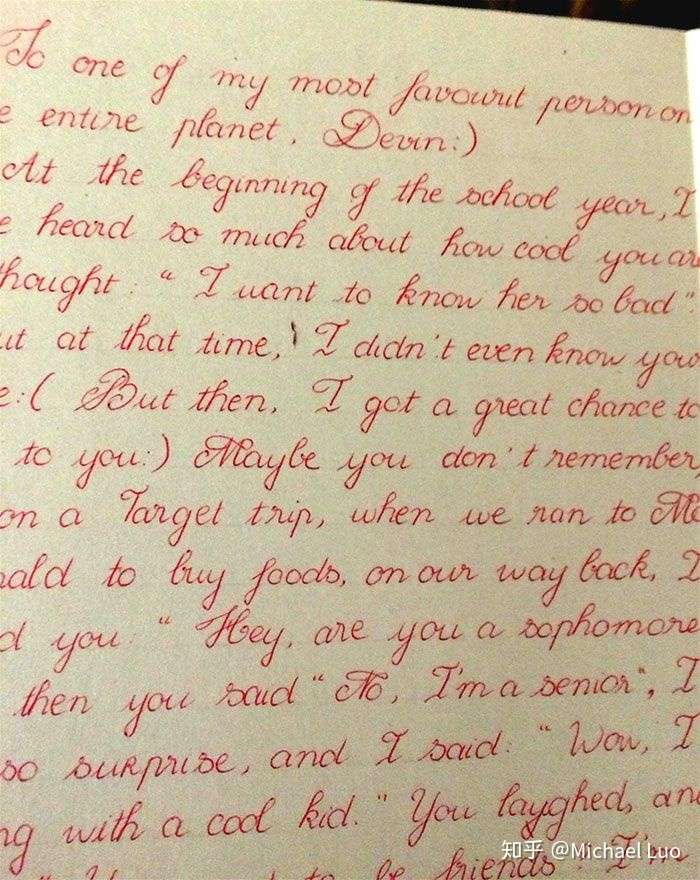 To one of my most favourit person on
e entire planet, Devin:)
At the beginning of the school year, I
e heard so much about how cool you are
hought: “I want to know her so bad”.
ut at that time, I didn't even know your
e:( But then, I got a great chance to
to you:) Maybe you don't remember
on a Target trip, when we ran to Mc
nald to buy foods, on our way back, I
d you: “Hey, are you a sophomore
then you said “No, I'm a senior”, I
so surprise, and I said: “Wow, I
ng with a cool kid.” You layghed, and
to be friends I'm
知乎 @Michael Luo